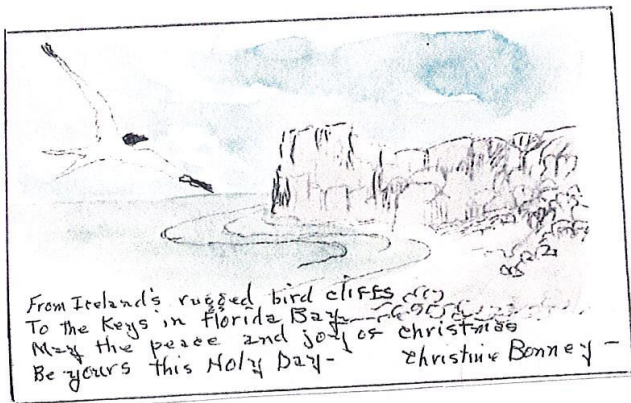 From Iceland's rugged bird cliffs
To the Keys in Florida Bay-
May the peace and joy of Christmas
Be yours this Holy Day-
Christine Bonney-